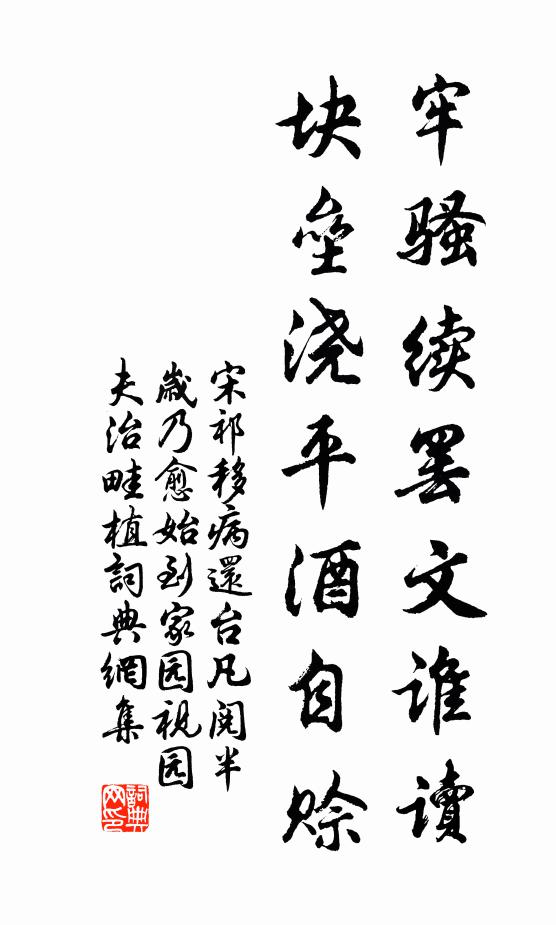 牢骚续罢文谁读
块垒浇平酒自赊
宋祁移病還台凡阅半
歳乃愈始到家园视园
夫治畦植詞典網集
詞典网印